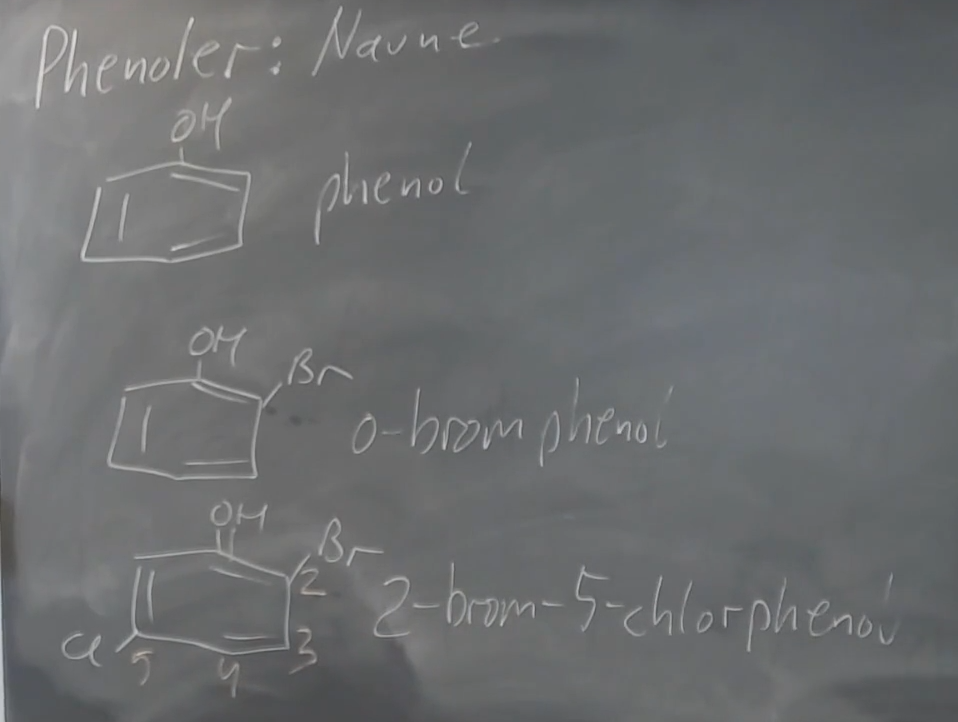 Phenoler: Navne
OH
phenol
OH
Br
o-bromphenol
OH
Br
2
2-brom-5-chlorphenol
Cl
5
4
3